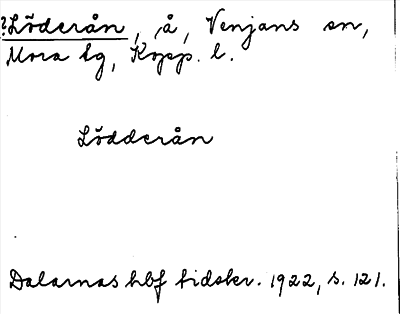 ?Löderån, å, Venjans sn,
Mora tg, Kopp. l.
Lödderån
Dalarnas hbf tidskr. 1922, s. 121.